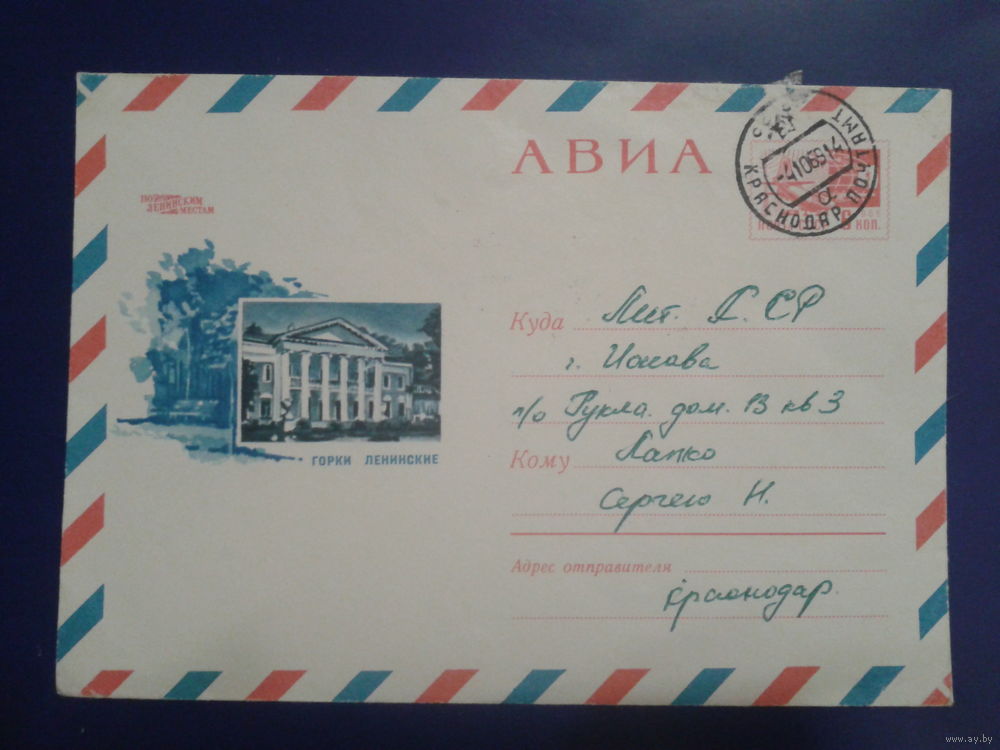 АВИА
ПО
ЛЕНИНСКИМ
МЕСТАМ
КРАСНОДАР ПОЧТАМТ
-4106914
а
6 КОП.
Куда Лит. С. СР
г. Ионава
п/о Рукла. дом. 13 кв 3
Кому Лапко
Сергею Н.
ГОРКИ ЛЕНИНСКИЕ
Адрес отправителя
Краснодар.
www.ay.by